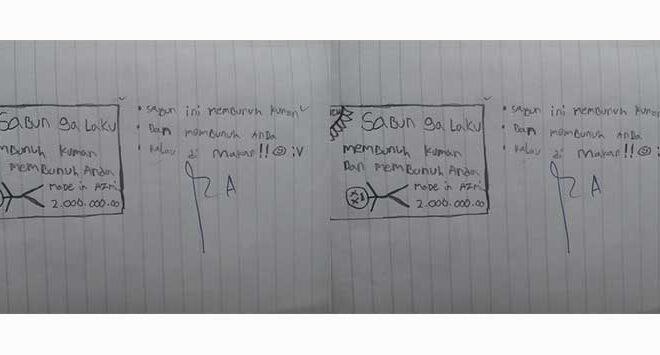 SaBun ga LaKu
mBunuh kuman
memBunuh Anda
made in AZri
2.000.000.00
• saBun ini memBunuh kuman
• Dan memBunuh AnDa
• kalau di makan!! :V
A
SaBun ga LaKu
memBunuh kuman
Dan memBunuh Anda
made in AZri
2.000.000.00
• saBun ini memBunuh kuman
• Dan memBunuh AnDa
• kalau di makan!! :V
A